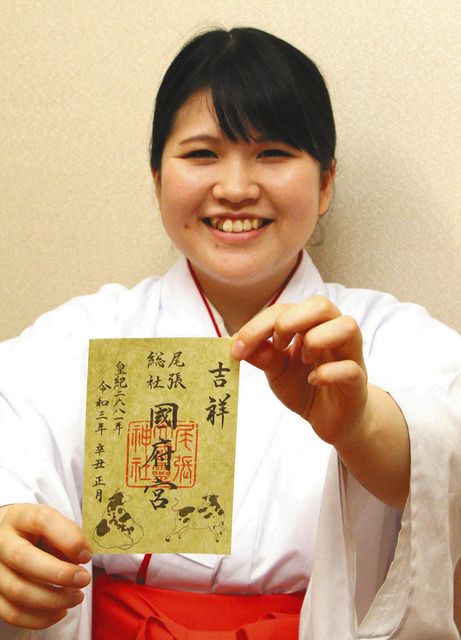 吉祥
尾張
総社
國府宮
尾張
神社
皇紀二六八一年
令和三年 辛丑 正月